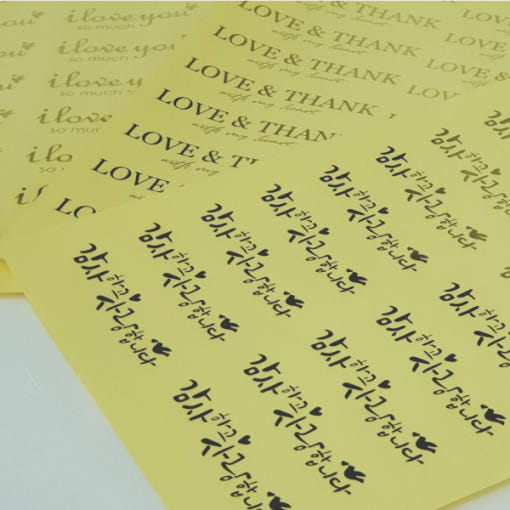 i love you
so much
i love you
so much
i love you
so much
i lov
so
LOVE & THANK
with my heart
LOVE & THANK
with my heart
LOVE & THANK
with my heart
LOVE & THANK
with my heart
LOVE & THAN
with my heart
LOVE & TH
with my
LOVE
LO
LOV
감사하고
사랑합니다
감사하고
사랑합니다
감사하고
사랑합니다
감사하고
사랑합니다
감사하고
사랑합니다
감사하고
사랑합니다
감사하고
사랑합니다
감사하고
사랑합니다
감사하고
사랑합니다
감사하고
사랑합니다
감사하고
사랑합니다
감사하고
사랑합니다